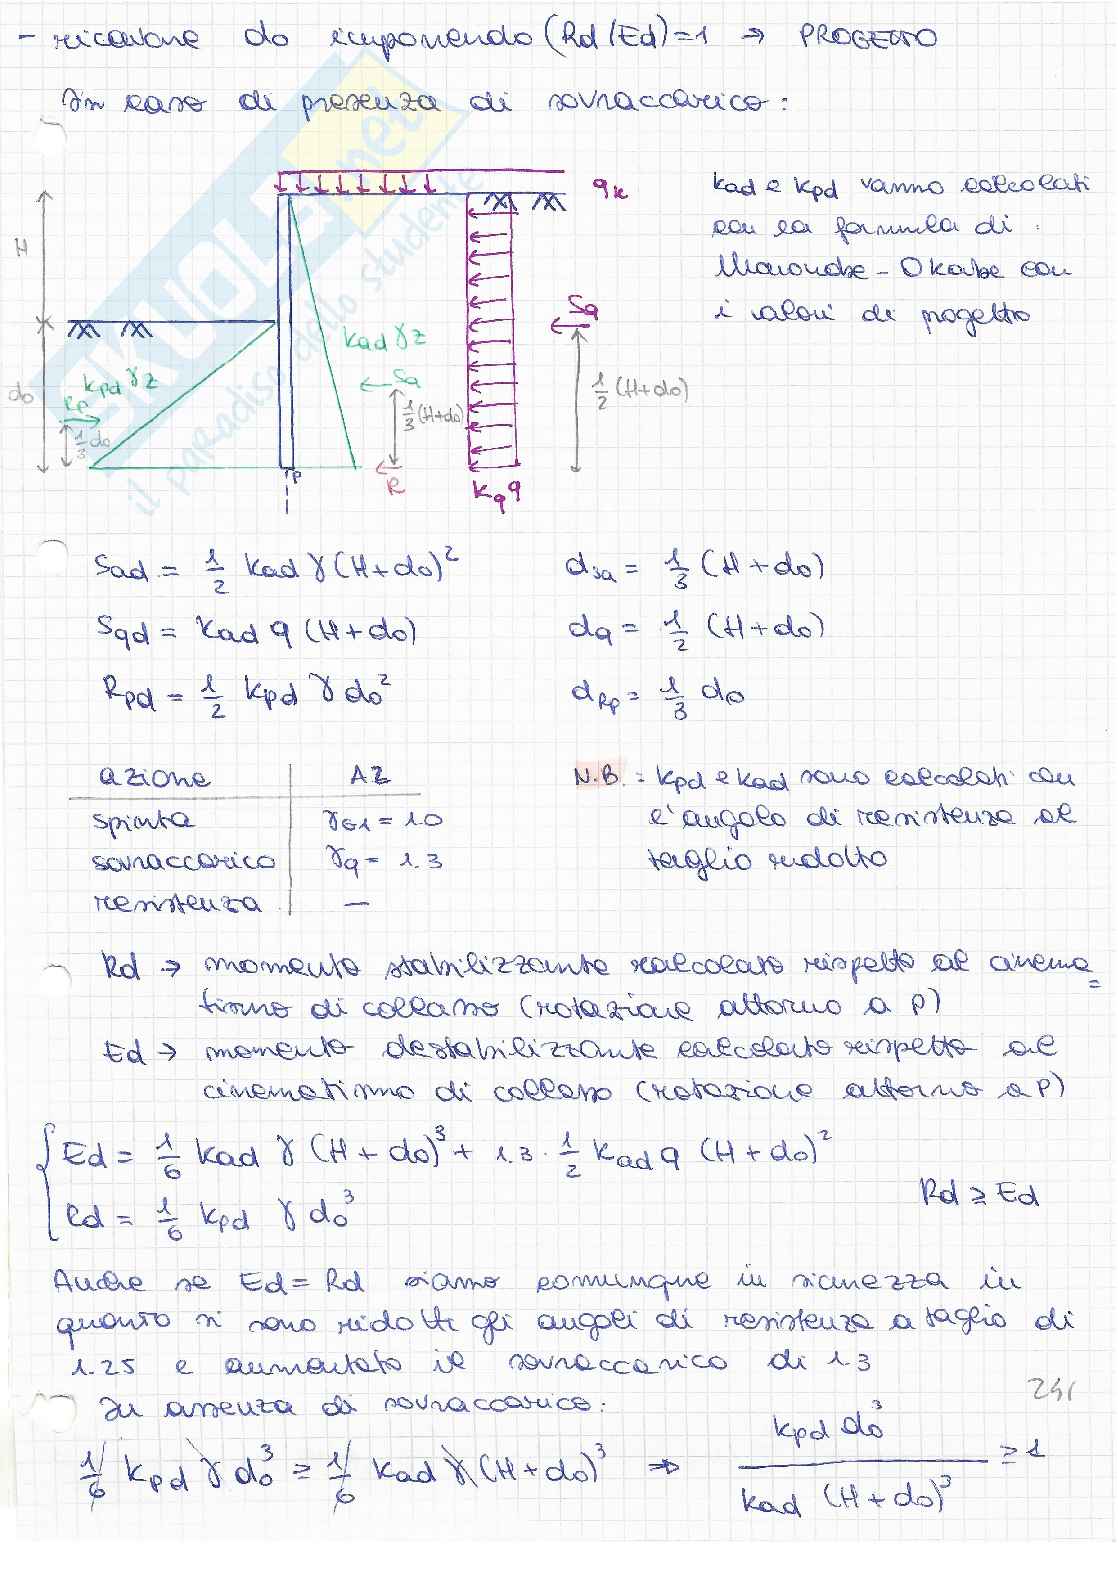 - ricavare do imponendo (Rd/Ed)=1 → PROGETTO
In caso di presenza di sovraccarico:
qk
H
do
kpd γ z
Rp
1/3 do
kad γ z
Sa
1/3 (H+do)
R
P
kq q
Sq
1/2 (H+do)
kad e kpd vanno calcolati
con la formula di
Mononobe - Okabe con
i valori di progetto
SKUOLA.net
il paradiso dello studente
Sad = 1/2 kad γ (H+do)²
dsa = 1/3 (H+do)
Sqd = kad q (H+do)
dq = 1/2 (H+do)
Rpd = 1/2 kpd γ do²
dRp = 1/3 do
azione A2
spinta γG1 = 1.0
sovraccarico γq = 1.3
resistenza —
N.B. = kpd e kad sono calcolati con
l'angolo di resistenza al
taglio ridotto
Rd → momento stabilizzante calcolato rispetto al cinema=
tismo di collasso (rotazione attorno a P)
Ed → momento destabilizzante calcolato rispetto al
cinematismo di collasso (rotazione attorno a P)
Ed = 1/6 kad γ (H+do)³ + 1.3 · 1/2 kad q (H+do)²
Rd = 1/6 kpd γ do³
Rd ≥ Ed
Anche se Ed = Rd siamo comunque in sicurezza in
quanto si sono ridotti gli angoli di resistenza a taglio di
1.25 e aumentato il sovraccarico di 1.3
In assenza di sovraccarico:
1/6 kpd γ do³ ≥ 1/6 kad γ (H+do)³ ⇒ kpd do³ / kad (H+do)³ ≥ 1